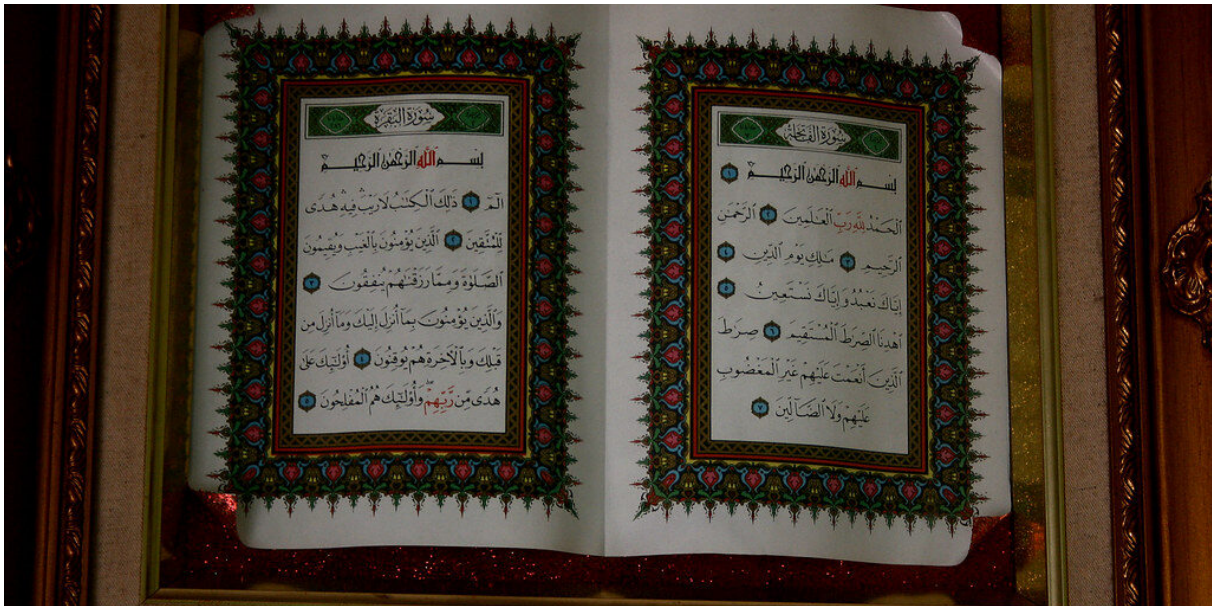 سُورَةُ الْفَاتِحَةِ
بِسْمِ اللَّهِ الرَّحْمَٰنِ الرَّحِيمِ ١
الْحَمْدُ لِلَّهِ رَبِّ الْعَالَمِينَ ٢ الرَّحْمَٰنِ
الرَّحِيمِ ٣ مَالِكِ يَوْمِ الدِّينِ ٤
إِيَّاكَ نَعْبُدُ وَإِيَّاكَ نَسْتَعِينُ ٥
اهْدِنَا الصِّرَاطَ الْمُسْتَقِيمَ ٦ صِرَاطَ
الَّذِينَ أَنْعَمْتَ عَلَيْهِمْ غَيْرِ الْمَغْضُوبِ
عَلَيْهِمْ وَلَا الضَّالِّينَ ٧
سُورَةُ الْبَقَرَةِ
بِسْمِ اللَّهِ الرَّحْمَٰنِ الرَّحِيمِ
الٓمٓ ١ ذَٰلِكَ الْكِتَابُ لَا رَيْبَ ۛ فِيهِ ۛ هُدًى
لِّلْمُتَّقِينَ ٢ الَّذِينَ يُؤْمِنُونَ بِالْغَيْبِ وَيُقِيمُونَ
الصَّلَوٰةَ وَمِمَّا رَزَقْنَاهُمْ يُنفِقُونَ ٣
وَالَّذِينَ يُؤْمِنُونَ بِمَا أُنزِلَ إِلَيْكَ وَمَا أُنزِلَ مِن
قَبْلِكَ وَبِالْآخِرَةِ هُمْ يُوقِنُونَ ٤ أُولَٰئِكَ عَلَىٰ
هُدًى مِّن رَّبِّهِمْ ۖ وَأُولَٰئِكَ هُمُ الْمُفْلِحُونَ ٥